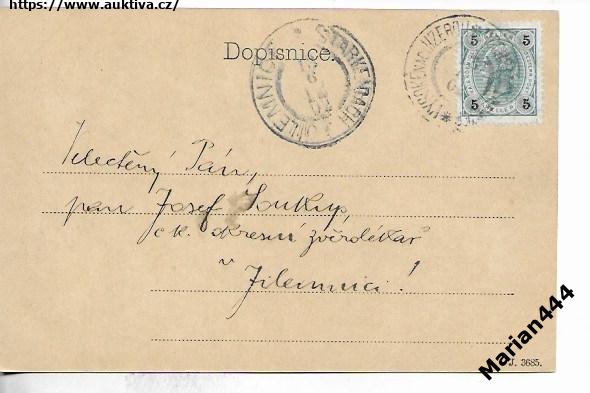 https://www.auktiva.cz/
Dopisnice.
STARKENBACH
JILEMNICE
5 5
5 5
Velectěný Pán,
pan Josef Soukup,
c k. okresní zvěrolékař
v Jilemnici!
Marian444
J. 3685.